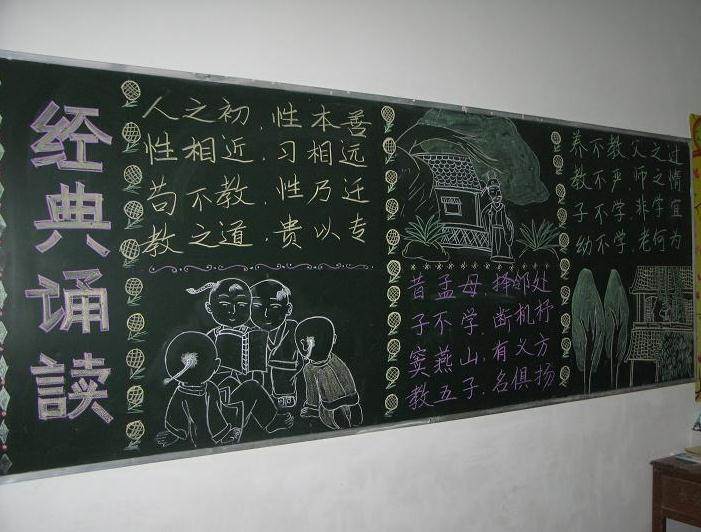 经典诵读
人之初,性本善
性相近.习相远
苟不教,性乃迁
教之道,贵以专
昔孟母,择邻处
子不学,断机杼
窦燕山,有义方
教五子,名俱扬
养不教,父之过
教不严,师之惰
子不学,非宜
幼不学,老何为